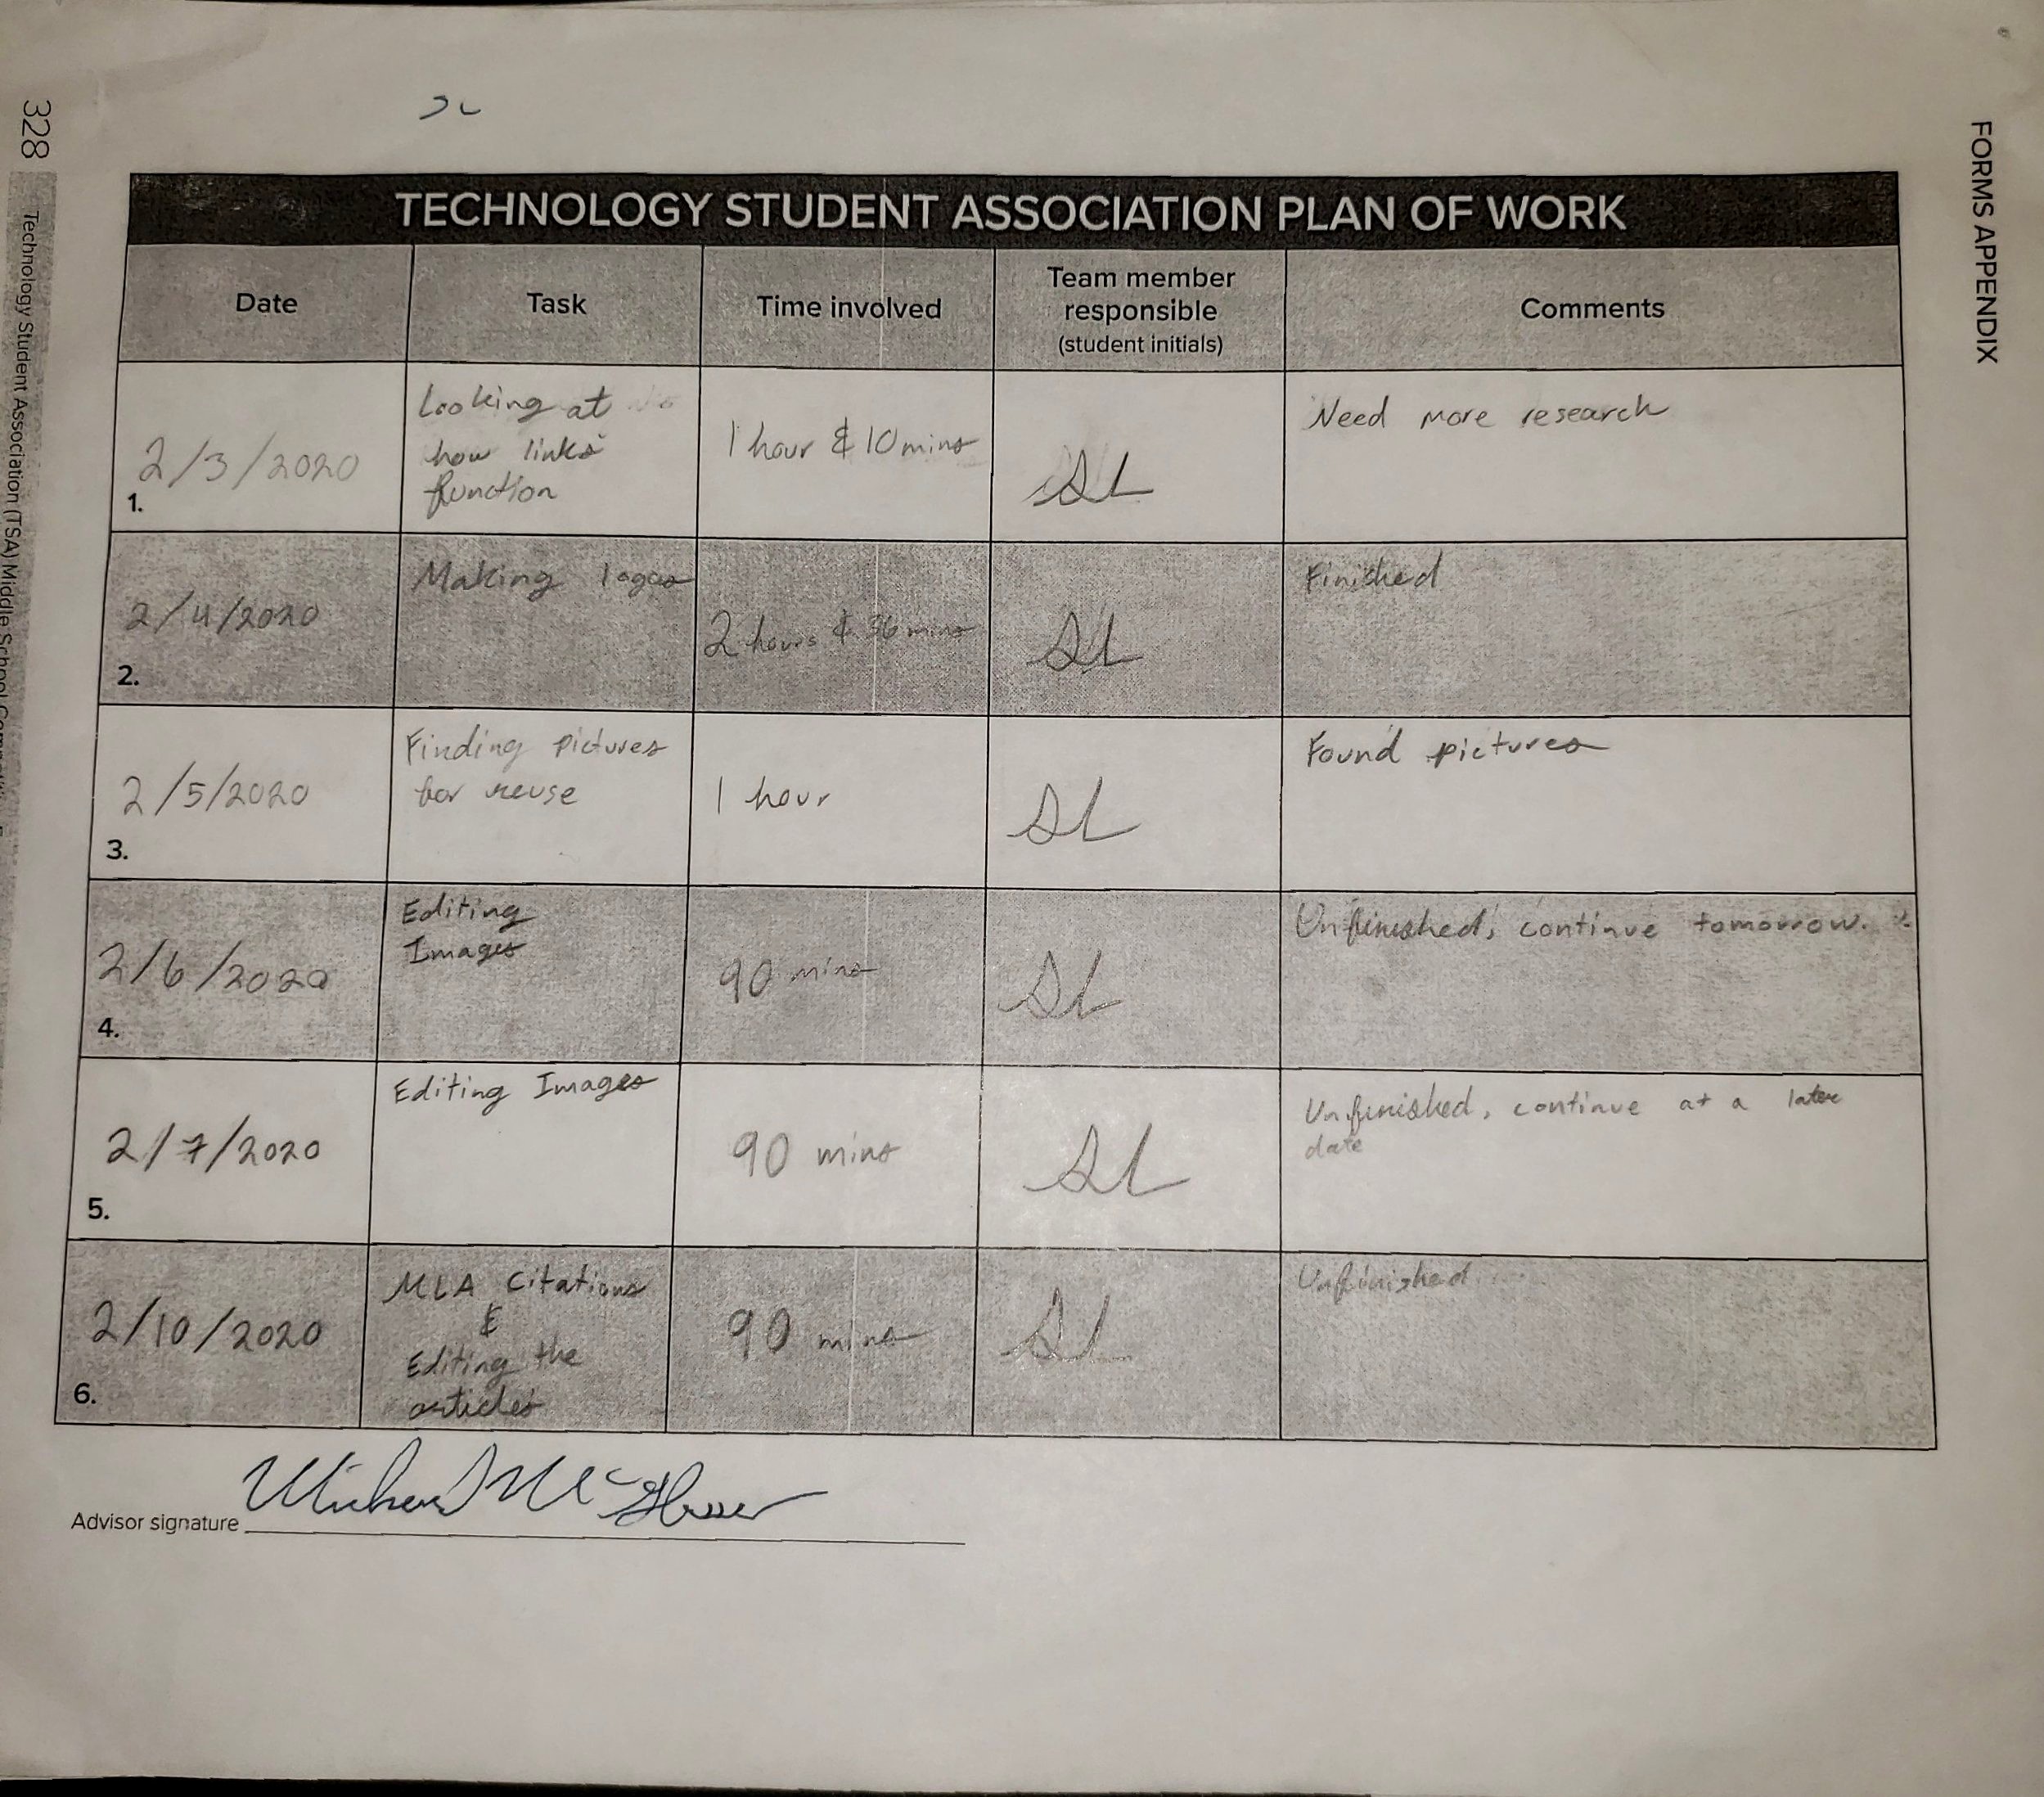 328
FORMS APPENDIX
TECHNOLOGY STUDENT ASSOCIATION PLAN OF WORK
Date
Task
Time involved
Team member
responsible
(student initials)
Comments
1.
2/3/2020
Looking at
how links
function
1 hour & 10 mins
SL
Need more research
2.
2/4/2020
Making logos
2 hours & 36 mins
SL
Finished
3.
2/5/2020
Finding pictures
for reuse
1 hour
SL
Found pictures
4.
2/6/2020
Editing
Images
90 mins
SL
Unfinished, continue tomorrow.
5.
2/7/2020
Editing Images
90 mins
SL
Unfinished, continue at a later
date
6.
2/10/2020
MLA Citations
&
Editing the
articles
90 mins
SL
Unfinished
Advisor signature
Technology Student Association (TSA) Middle School